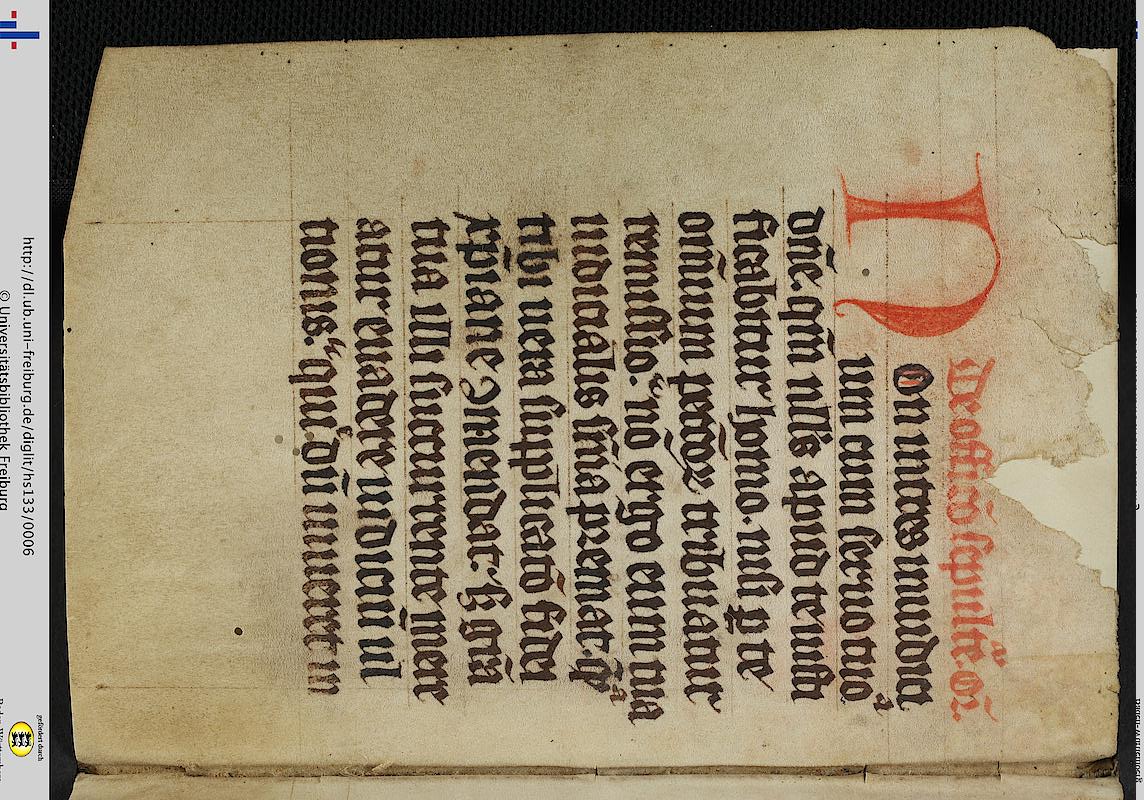 De officio sepulture. or̄.
Non intres in iudici
um cum seruo tuo
dn̄e. qm̄ nullꝰ apud te iusti
ficabitur homo. nisi ꝑ te
om̄ium pctōꝝ tribuatur
remissio. nō ergo eum tua
iudicialis sn̄ia p̄mat. qͣ
tibi uera supplicatō fidei
xp̄iane ɔmendat. sꝫ gr̄a
tua illi succurrente m̄ear
atur euadere iudiciū ul
tionis. qui dū uiueret in
http://dl.ub.uni-freiburg.de/diglit/hs133/0006
© Universitätsbibliothek Freiburg
gefördert durch